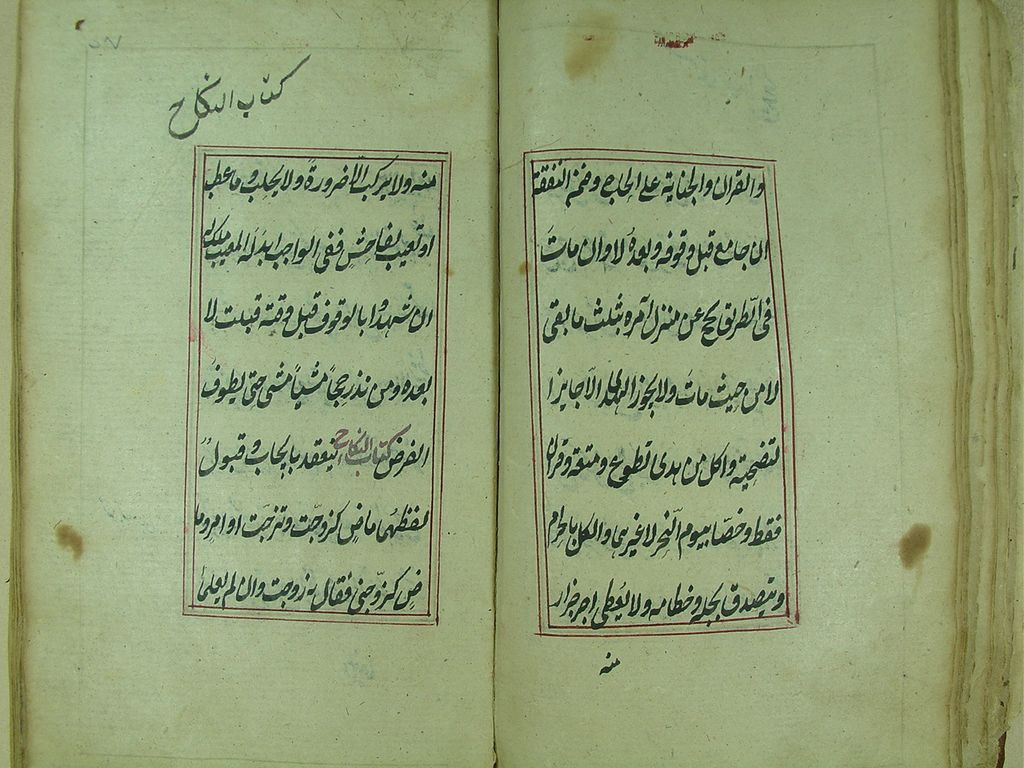 والقران والجناية على الحاج وضمن النفقة
ان جامع قبل وقوفه وبعده لا وان مات
فى الطريق يحج عن منزل آمره بثلث ما بقى
لا من حيث مات ولا يجوز الهدى الا جايزا
لتضحية واكل من هدى تطوع ومتعة وقران
فقط وخصا بيوم النحر لا غيرهما والكل بالحرام
ويتصدق بجله وخطامه ولا يعطى اجر جزار
منه
كتاب النكاح
منه ولا يركب الّا ضرورةً ولا يحلب وما عطب
او تعيب بفاحش ففى الواجب ابدله والمعيب ملكه
ان شهدوا بالوقوف قبل وقته قبلت لا
بعده ومن نذر حجاً مشياً مشى حتى يطوف
الفرض كتاب النكاح ينعقد بايجاب وقبول
لفظهما ماض كزوجت وتزوجت او امر وما
ض كزوّجنى فقال زوجت وان لم يعلما